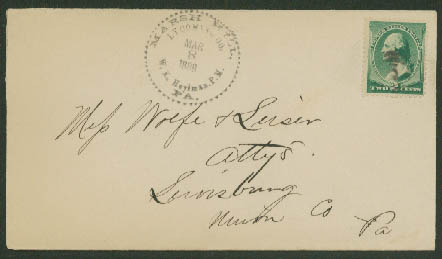 MARSH HILL,
LYCOMING CO.
MAR
1888
P.M.
PA.
TWO CENTS
Mess Wolfe & Leiser
Attys.
Lewisburg
Union Co
Pa